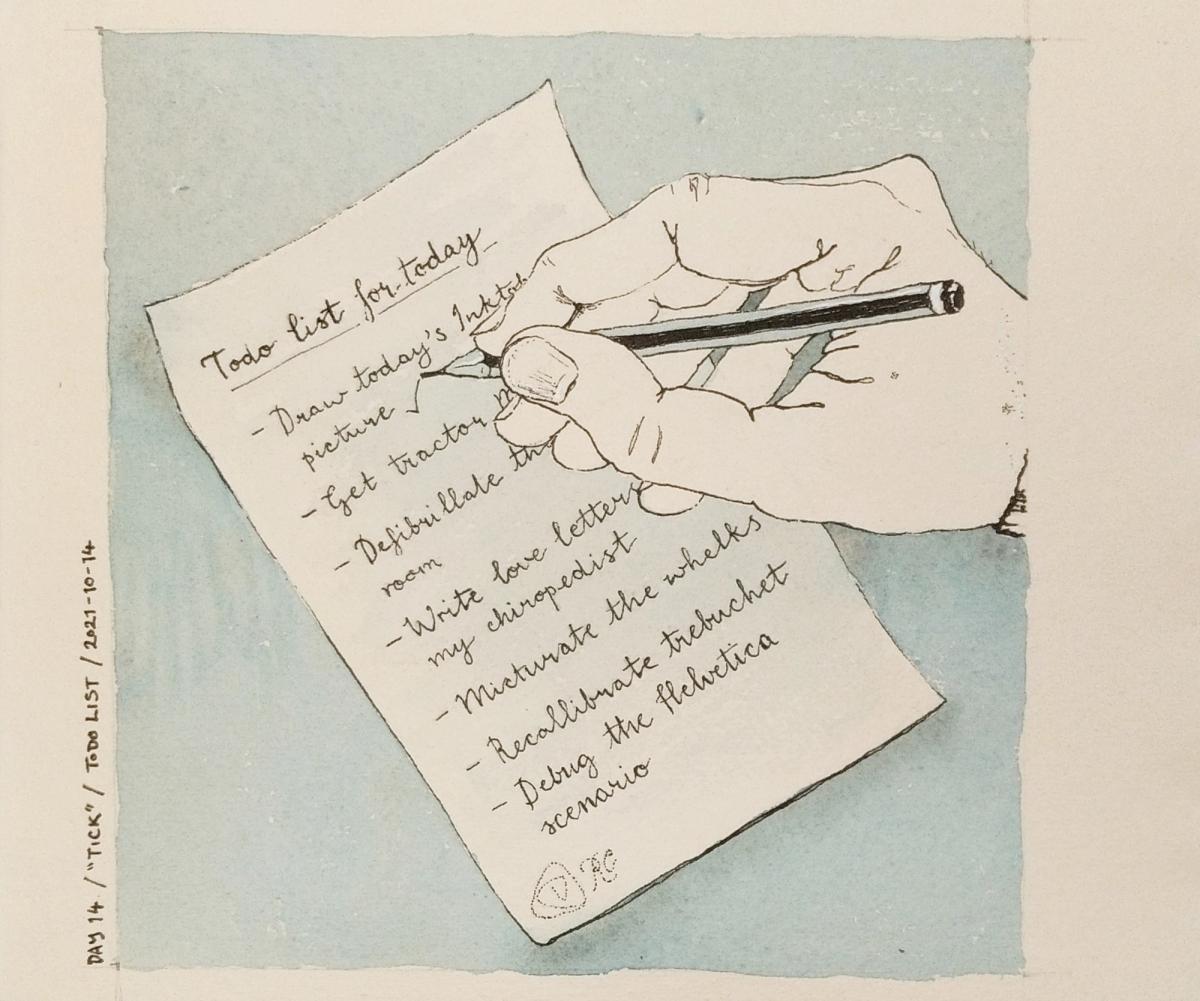 Todo list for today
- Draw today's Inktob
picture ✓
- Get tractor
- Defibrillate the
room
- Write love letters
my chiropedist
- Micturate the whelks
- Recallibrate trebuchet
- Debug the Helvetica
scenario
RC
DAY 14 / "TICK" / TODO LIST / 2021-10-14